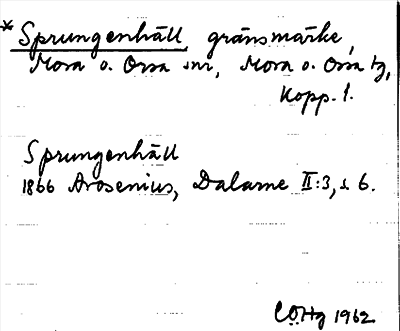 * Sprungenhäll, gränsmärke,
Mora o. Orsa snr, Mora o. Orsa tg,
Kopp. l.
Sprungenhäll
1866 Arosenius, Dalarne II:3, s. 6.
CÖHg 1962